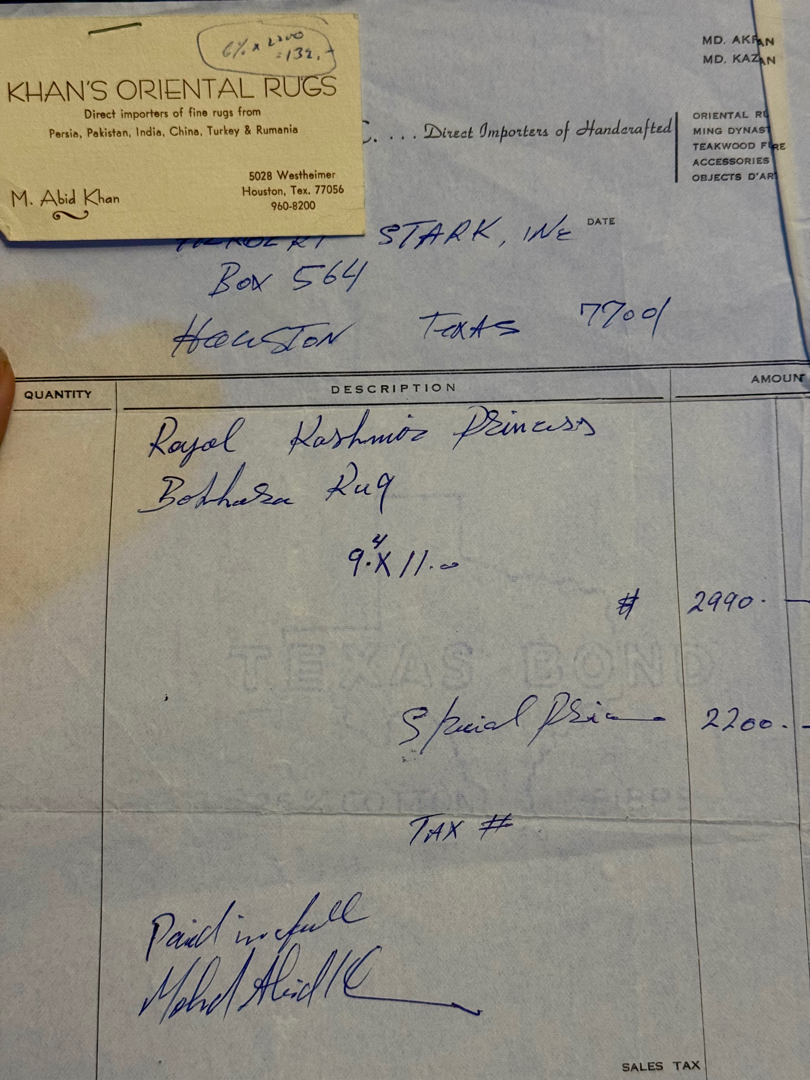 6% x 2200
=132.-
KHAN'S ORIENTAL RUGS
Direct importers of fine rugs from
Persia, Pakistan, India, China, Turkey & Rumania
M. Abid Khan
5028 Westheimer
Houston, Tex. 77056
960-8200
MD. AKFAN
MD. KAZAN
C. . . . Direct Importers of Handcrafted
ORIENTAL RU
MING DYNAST
TEAKWOOD FURE
ACCESSORIES
OBJECTS D'ART
STARK, INC
DATE
Box 564
HOUSTON TEXAS 77001
QUANTITY
DESCRIPTION
AMOUNT
Royal Kashmir Princess
Bokhara Rug
9.4 X 11.0
# 2990.-
Special Price 2200.-
TEXAS BOND
25% COTTON FIBRE
TAX #
Paid in full
Mohd Abid K
SALES TAX